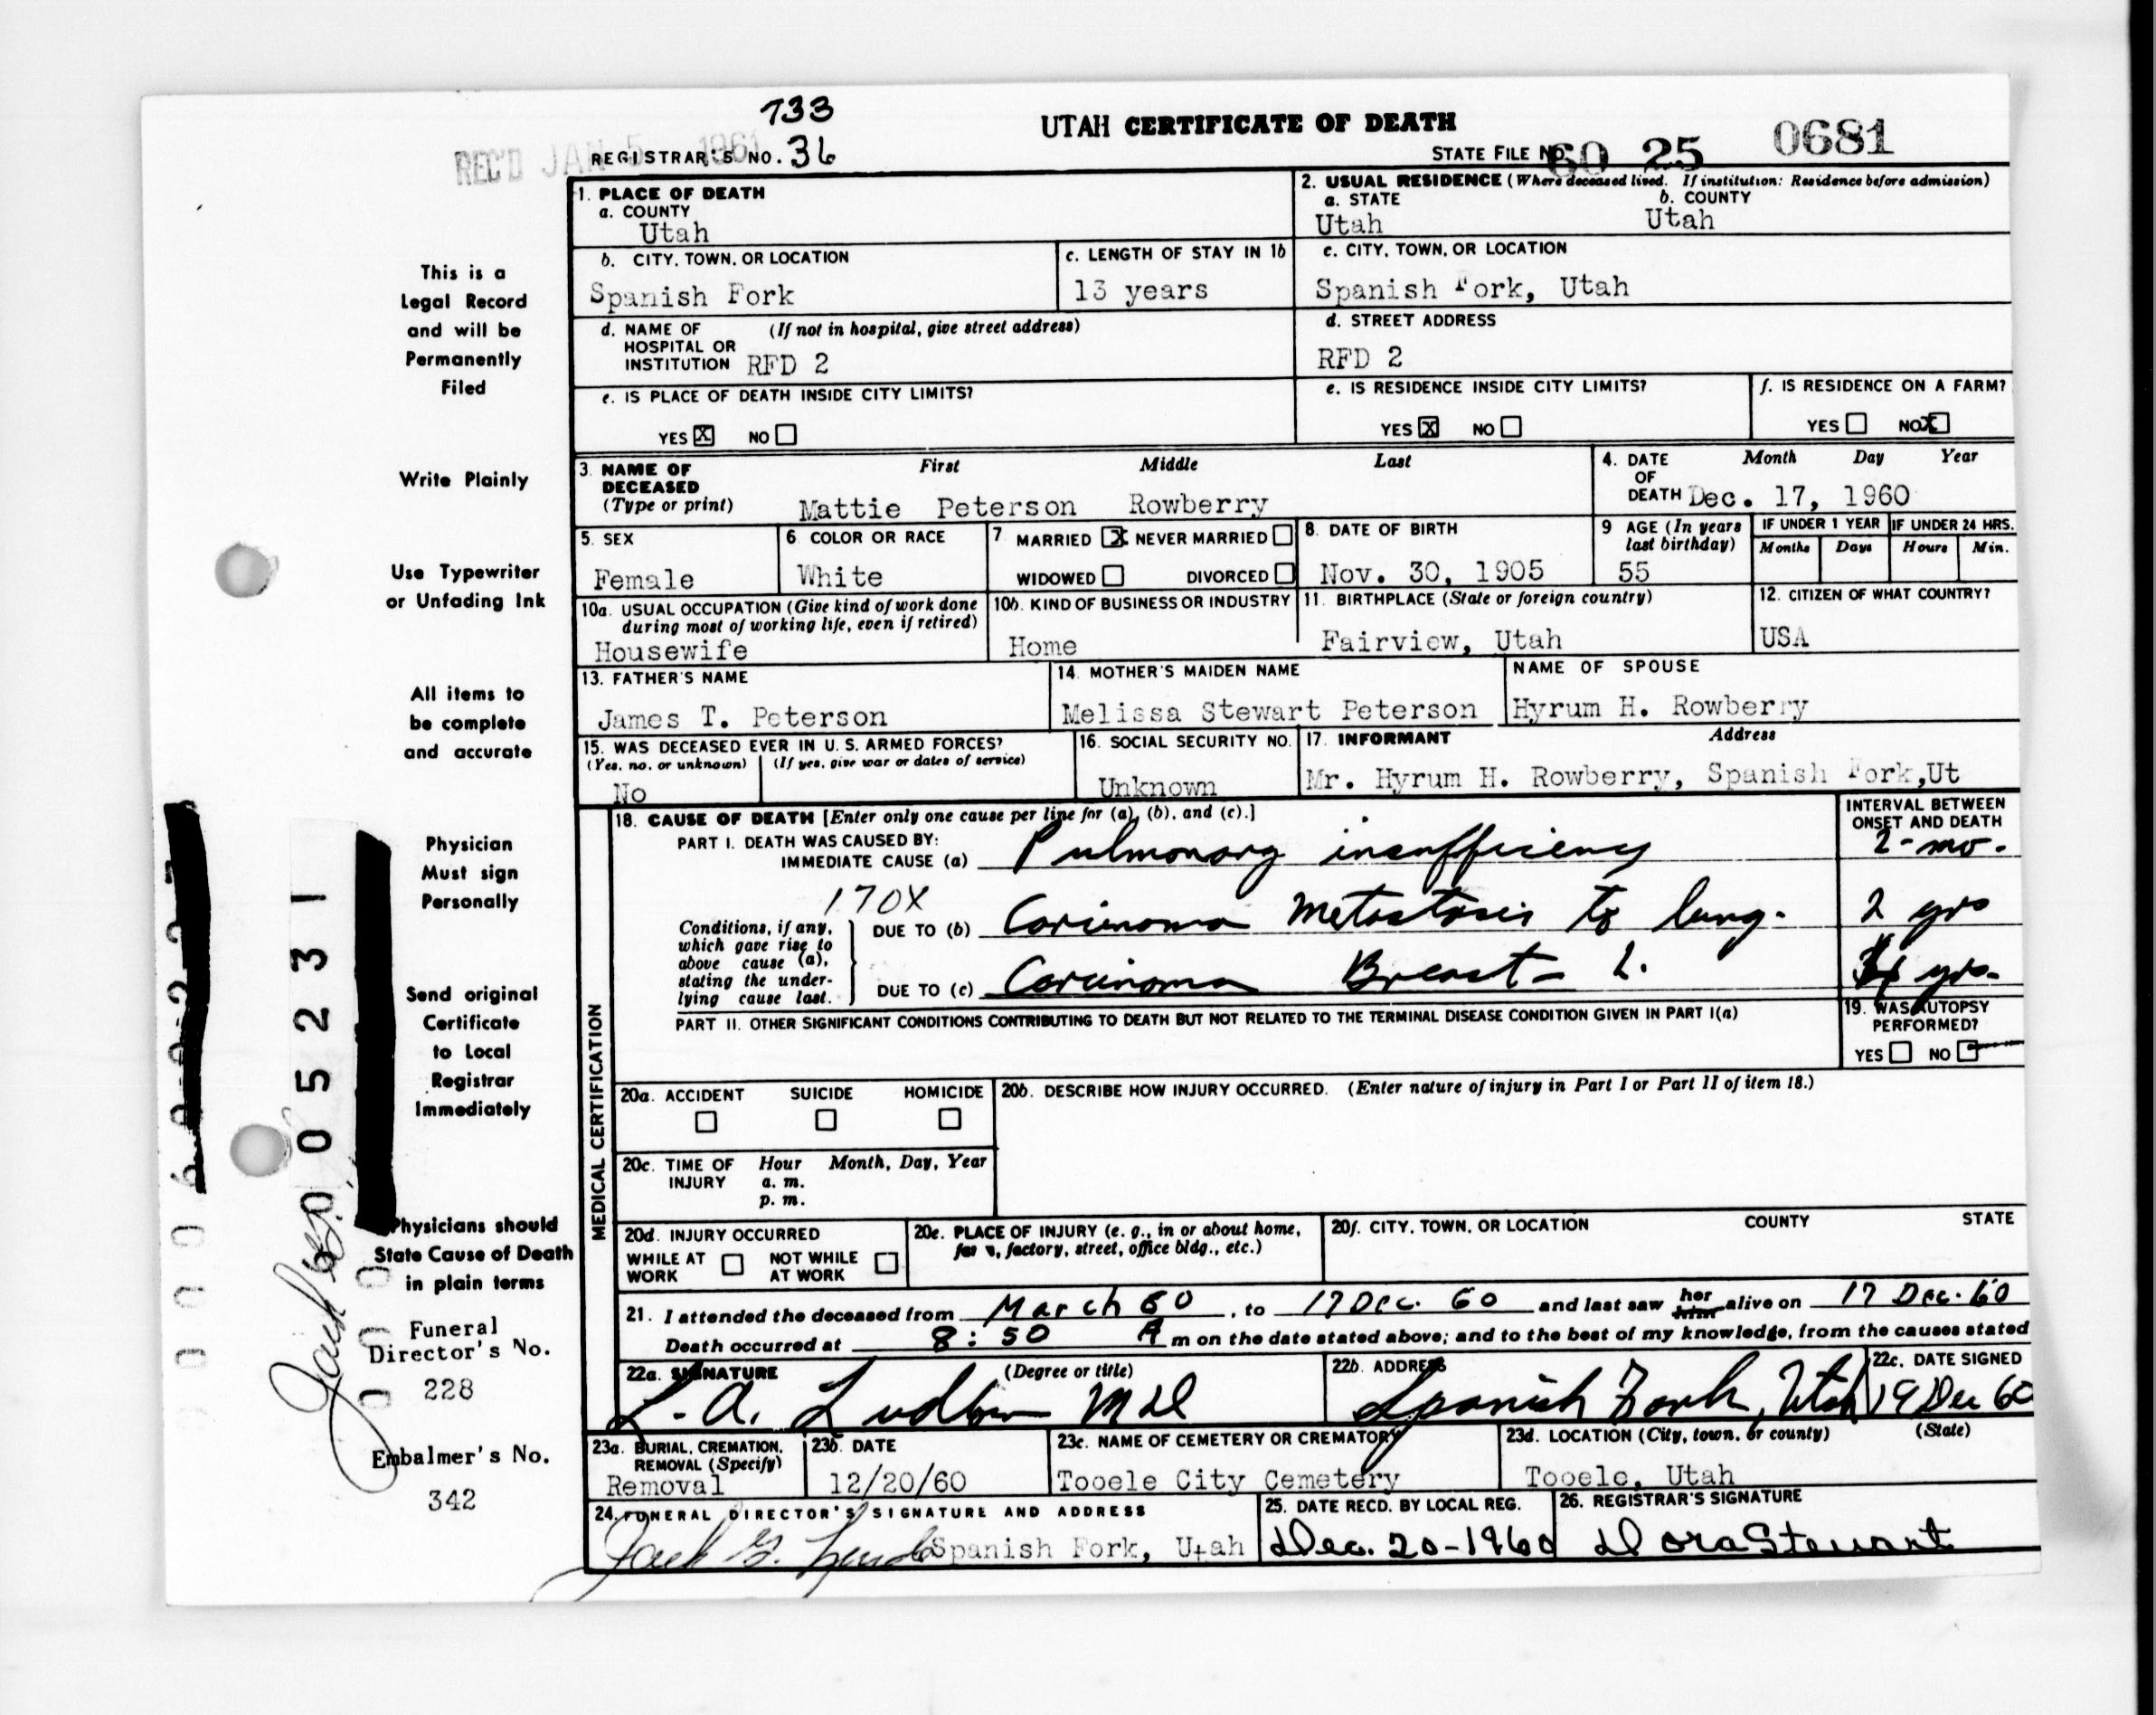 733
UTAH CERTIFICATE OF DEATH
REC'D JAN 5 1961
REGISTRAR'S NO. 36
STATE FILE NO. 60 25 0681
This is a
Legal Record
and will be
Permanently
Filed
Write Plainly
Use Typewriter
or Unfading Ink
All items to
be complete
and accurate
Physician
Must sign
Personally
Send original
Certificate
to Local
Registrar
Immediately
Physicians should
State Cause of Death
in plain terms
Funeral
Director's No.
228
Embalmer's No.
342
05231
1. PLACE OF DEATH
a. COUNTY
Utah
2. USUAL RESIDENCE (Where deceased lived. If institution: Residence before admission)
a. STATE b. COUNTY
Utah Utah
b. CITY, TOWN, OR LOCATION
Spanish Fork
c. LENGTH OF STAY IN 1b
13 years
c. CITY, TOWN, OR LOCATION
Spanish Fork, Utah
d. NAME OF (If not in hospital, give street address)
HOSPITAL OR
INSTITUTION RFD 2
d. STREET ADDRESS
RFD 2
e. IS PLACE OF DEATH INSIDE CITY LIMITS?
YES X NO
e. IS RESIDENCE INSIDE CITY LIMITS?
YES X NO
f. IS RESIDENCE ON A FARM?
YES NO X
3. NAME OF First Middle Last
DECEASED
(Type or print) Mattie Peterson Rowberry
4. DATE Month Day Year
OF
DEATH Dec. 17, 1960
5. SEX
Female
6. COLOR OR RACE
White
7. MARRIED X NEVER MARRIED
WIDOWED DIVORCED
8. DATE OF BIRTH
Nov. 30, 1905
9 AGE (In years
last birthday)
55
IF UNDER 1 YEAR IF UNDER 24 HRS.
Months Days Hours Min.
10a. USUAL OCCUPATION (Give kind of work done
during most of working life, even if retired)
Housewife
10b. KIND OF BUSINESS OR INDUSTRY
Home
11. BIRTHPLACE (State or foreign country)
Fairview, Utah
12. CITIZEN OF WHAT COUNTRY?
USA
13. FATHER'S NAME
James T. Peterson
14. MOTHER'S MAIDEN NAME
Melissa Stewart Peterson
NAME OF SPOUSE
Hyrum H. Rowberry
15. WAS DECEASED EVER IN U. S. ARMED FORCES?
(Yes, no, or unknown) (If yes, give war or dates of service)
No
16. SOCIAL SECURITY NO.
Unknown
17. INFORMANT Address
Mr. Hyrum H. Rowberry, Spanish Fork,Ut
MEDICAL CERTIFICATION
18. CAUSE OF DEATH [Enter only one cause per line for (a), (b), and (c).]
INTERVAL BETWEEN
ONSET AND DEATH
PART I. DEATH WAS CAUSED BY:
IMMEDIATE CAUSE (a) Pulmonary insufficiency 2-mo.
170X
Conditions, if any,
which gave rise to
above cause (a),
stating the under-
lying cause last.
DUE TO (b) Carcinoma Metastasis to lung. 2 yrs
DUE TO (c) Carcinoma Breast - L. 4 yrs.
PART II. OTHER SIGNIFICANT CONDITIONS CONTRIBUTING TO DEATH BUT NOT RELATED TO THE TERMINAL DISEASE CONDITION GIVEN IN PART I(a)
19. WAS AUTOPSY
PERFORMED?
YES NO
20a. ACCIDENT SUICIDE HOMICIDE
20b. DESCRIBE HOW INJURY OCCURRED. (Enter nature of injury in Part I or Part II of item 18.)
20c. TIME OF Hour Month, Day, Year
INJURY a. m.
p. m.
20d. INJURY OCCURRED
WHILE AT NOT WHILE
WORK AT WORK
20e. PLACE OF INJURY (e. g., in or about home,
factory, street, office bldg., etc.)
20f. CITY, TOWN, OR LOCATION COUNTY STATE
21. I attended the deceased from March 60, to 17 Dec. 60 and last saw her him alive on 17 Dec. 60
Death occurred at 8:50 A m on the date stated above; and to the best of my knowledge, from the causes stated
22a. SIGNATURE (Degree or title)
L. A. Ludlow MD
22b. ADDRESS
Spanish Fork, Utah
22c. DATE SIGNED
19 Dec 60
23a. BURIAL, CREMATION,
REMOVAL (Specify)
Removal
23b. DATE
12/20/60
23c. NAME OF CEMETERY OR CREMATORY
Tooele City Cemetery
23d. LOCATION (City, town, or county) (State)
Tooele, Utah
24. FUNERAL DIRECTOR'S SIGNATURE AND ADDRESS
Jack G. Spanish Fork, Utah
25. DATE RECD. BY LOCAL REG.
Dec. 20-1960
26. REGISTRAR'S SIGNATURE
Dora Stewart